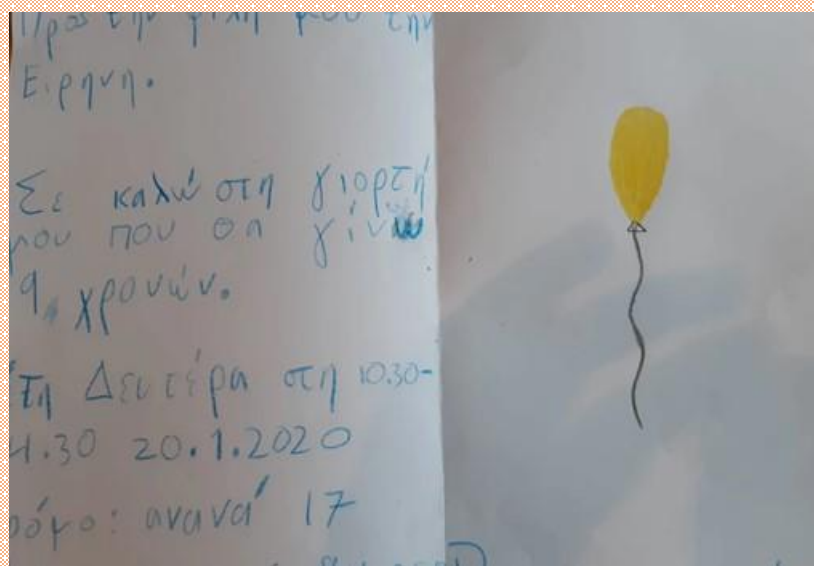 Προς την φίλη μου την
Ειρηνη.
Σε καλώ στη γιορτή
μου που θα γίνω
9 χρονών.
Τη Δευτέρα στη 10.30-
.30 20.1.2020
ρόμο: ανανά 17